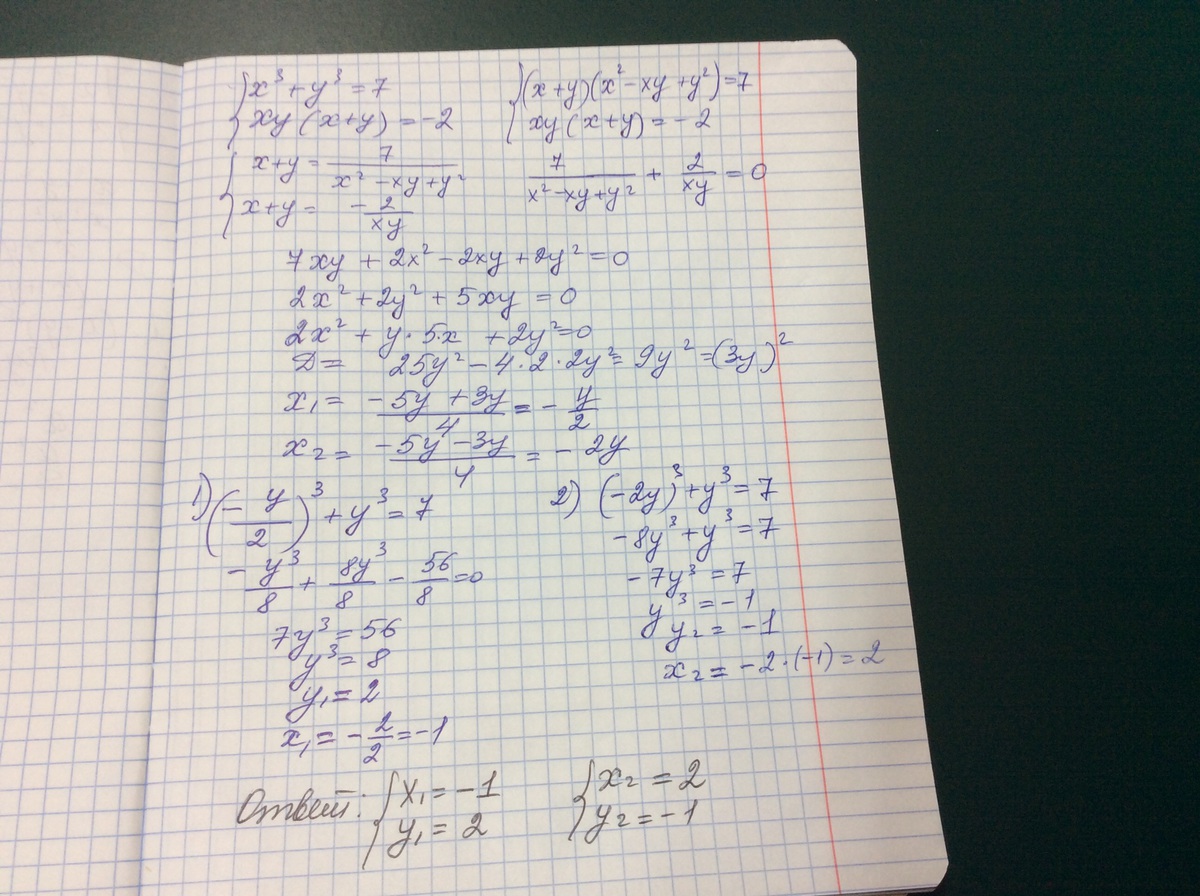 { x³ + y³ = 7
xy (x+y) = -2
{ (x+y)(x² - xy + y²) = 7
xy (x+y) = -2
{ x+y = 7/(x² - xy + y²)
x+y = - 2/(xy)
7/(x² - xy + y²) + 2/(xy) = 0
7xy + 2x² - 2xy + 2y² = 0
2x² + 2y² + 5xy = 0
2x² + y·5x + 2y² = 0
D = 25y² - 4·2·2y² = 9y² = (3y)²
x₁ = (-5y + 3y)/4 = - y/2
x₂ = (-5y - 3y)/4 = - 2y
1) (-y/2)³ + y³ = 7
- y³/8 + 8y³/8 - 56/8 = 0
7y³ = 56
y³ = 8
y₁ = 2
x₁ = - 2/2 = -1
2) (-2y)³ + y³ = 7
-8y³ + y³ = 7
-7y³ = 7
y³ = -1
y₂ = -1
x₂ = -2·(-1) = 2
Ответ: { x₁ = -1
y₁ = 2
{ x₂ = 2
y₂ = -1